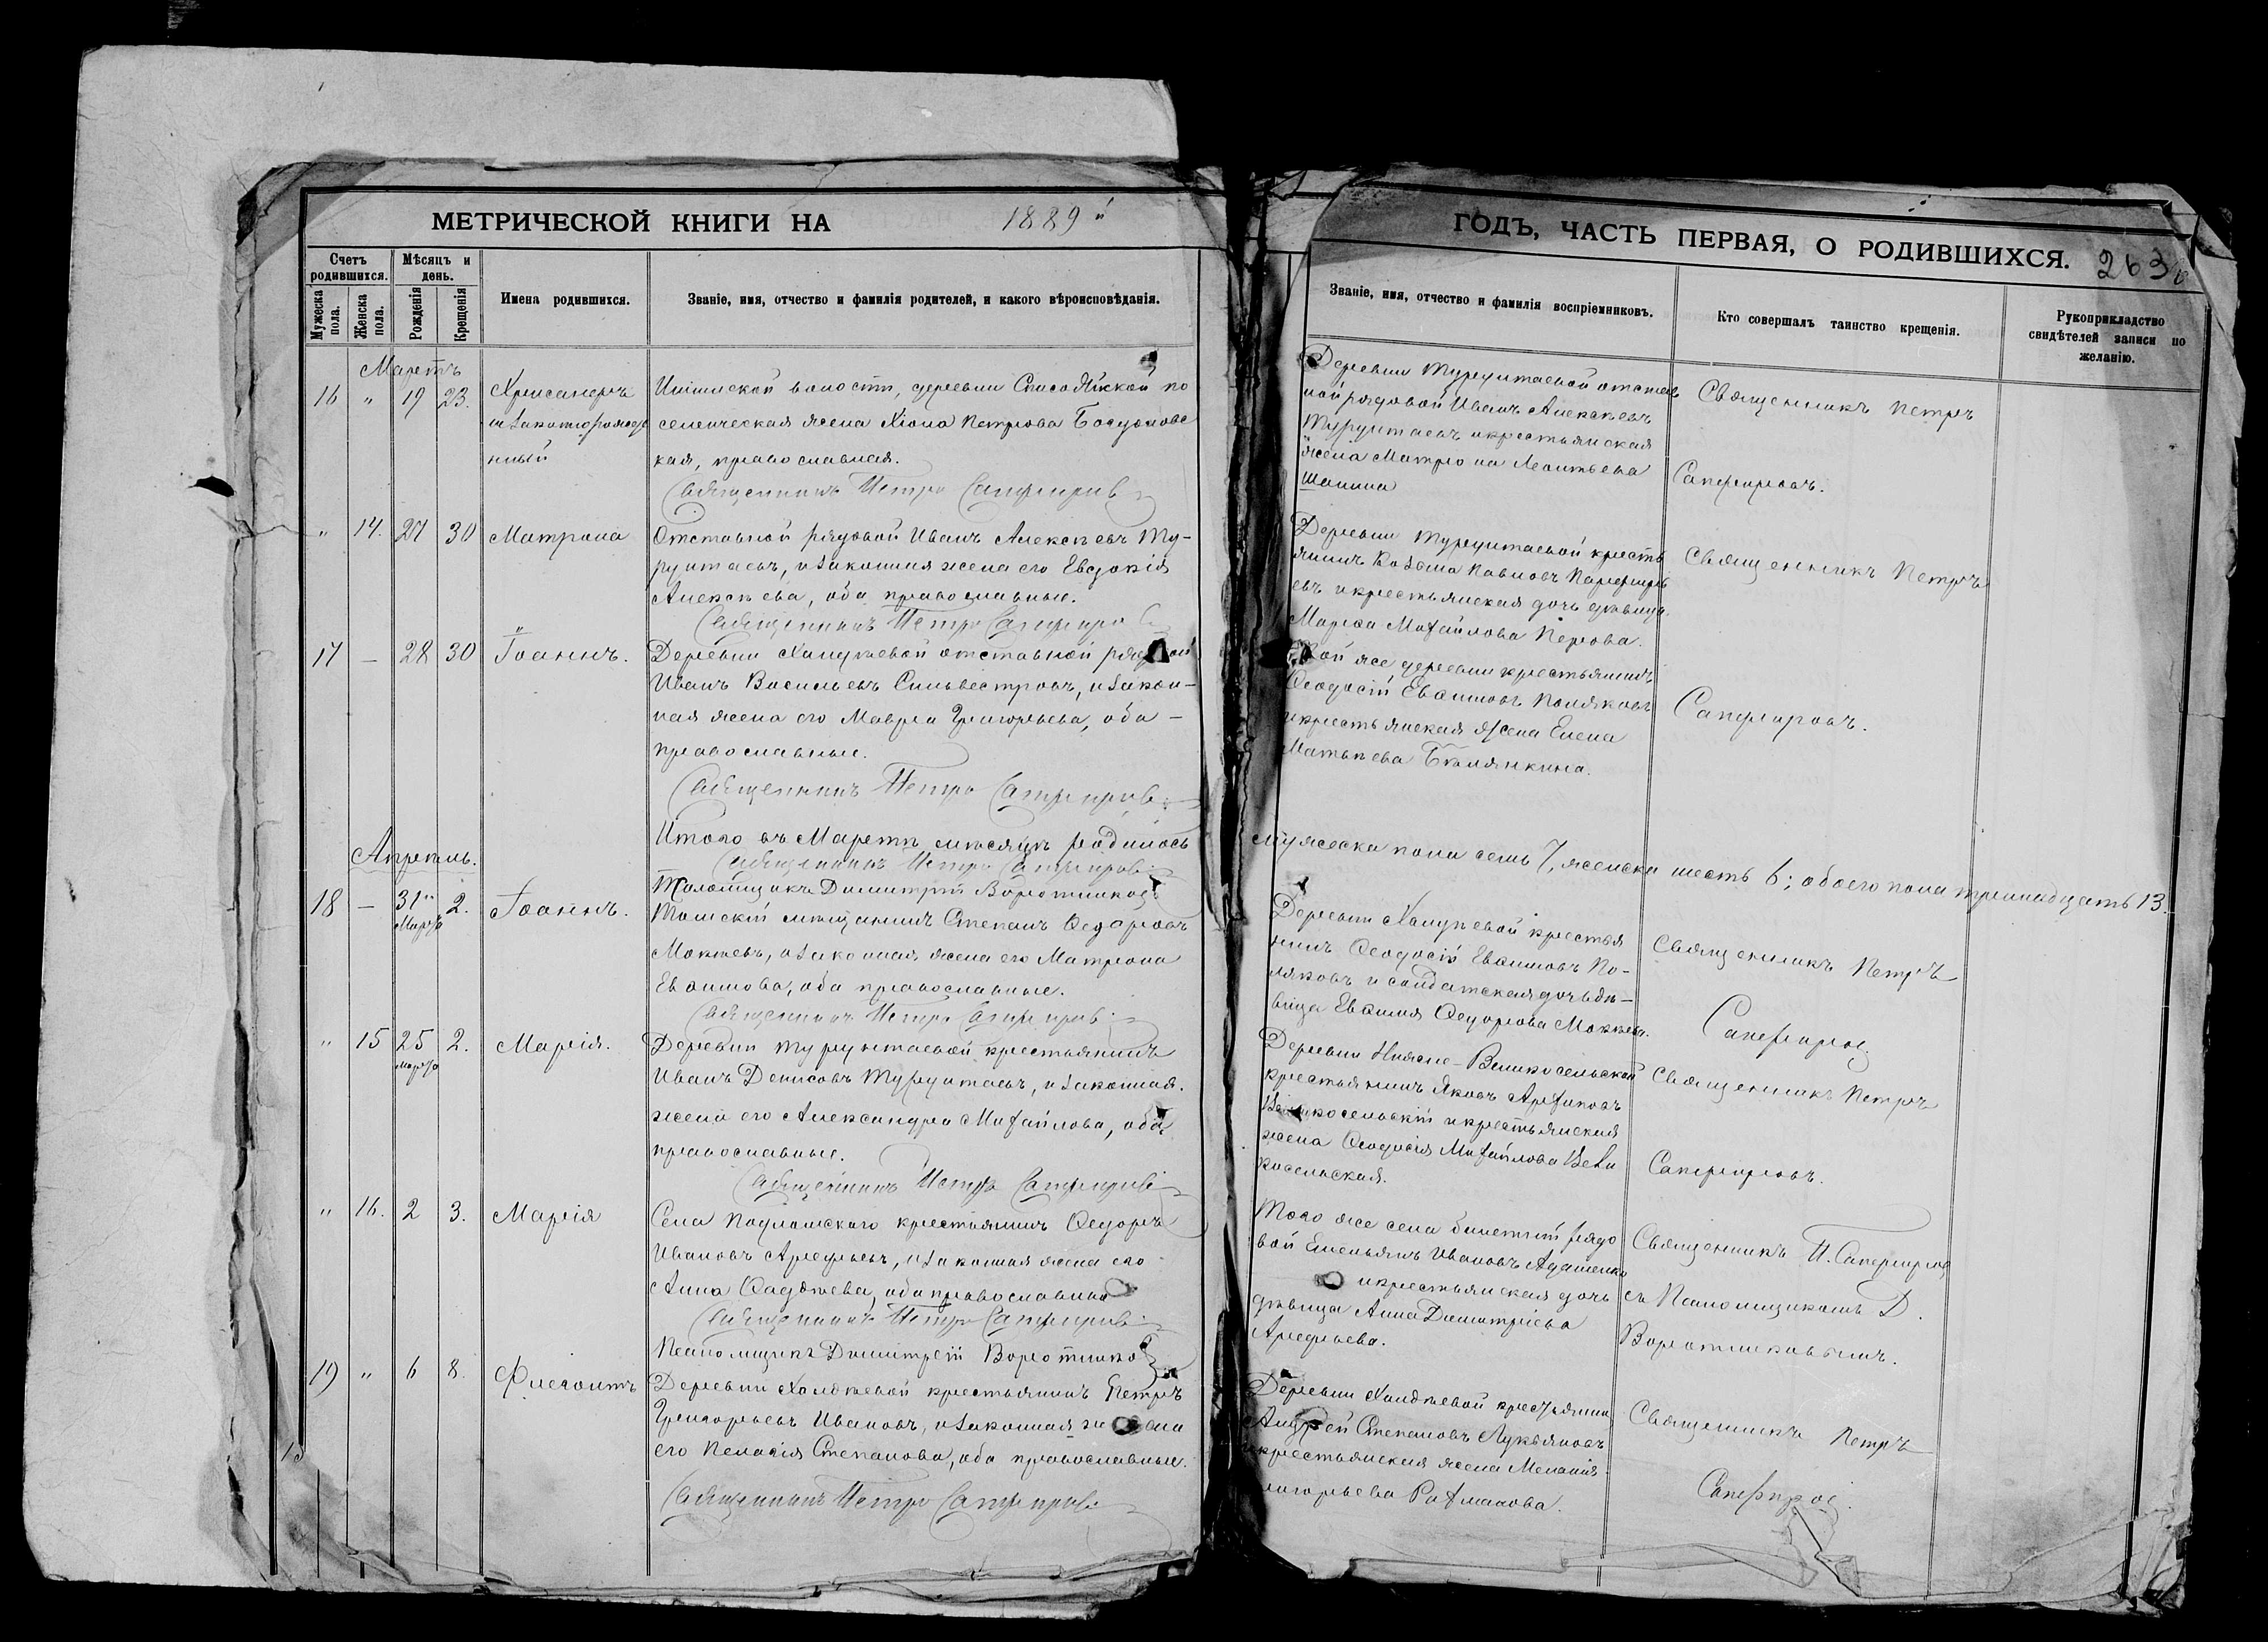 МЕТРИЧЕСКОЙ КНИГИ НА 1889й
Счетъ родившихся.
Мужеска пола.
Женска пола.
Мѣсяцъ и день.
Рожденія
Крещенія
Имена родившихся.
Званіе, имя, отчество и фамилія родителей, и какого вѣроисповѣданія.
Мартъ
16 " 19 23.
Хрисанфъ
незаконорожде
нный
волости, деревни
селенческая жена Хіона Петрова
кая, православная.
Священникъ Петръ Сапфировъ
" 14. 27 30 Матрона
Отставной рядовой Иванъ Алексѣевъ Ту-
рунтаевъ, и законная жена его Евдокія
Алексѣева, оба православные.
Священникъ Петръ Сапфировъ
17 — 28 30 Іоаннъ.
Деревни Халдѣевой отставной рядовой
Иванъ Васильевъ Сильвестровъ, и закон-
ная жена его Мавра Григорьева, оба -
православные.
Священникъ Петръ Сапфировъ
Итого въ Мартѣ мѣсяцѣ родилось
Священникъ Петръ Сапфировъ
Псаломщикъ Димитрій Воротниковъ
Апрѣль.
18 — 31го Марта 2. Іоаннъ.
Томскій мѣщанинъ Степанъ Ѳедоровъ
Мокѣевъ, и законная жена его Матрона
Евоимова, оба православные.
Священникъ Петръ Сапфировъ
" 15 25 марта 2. Марія.
Деревни Турунтаевой крестьянинъ
Иванъ Денисовъ Турунтаевъ, и законная.
жена его Александра Михайлова, оба
православные.
Священникъ Петръ Сапфировъ
" 16. 2 3. Марія
Села Подломскаго крестьянинъ Ѳедоръ
Ивановъ Арефьевъ, и законная жена его
Анна Ѳаддѣева, оба православные
Священникъ Петръ Сапфировъ
Псаломщикъ Димитрій Воротниковъ
19 " 6 8. Флегонтъ
Деревни Халдѣевой крестьянинъ Петръ
Григорьевъ Ивановъ, и законная жена
его Пелагія Степанова, оба православные.
Священникъ Петръ Сапфировъ
ГОДЪ, ЧАСТЬ ПЕРВАЯ, О РОДИВШИХСЯ. 263
Званіе, имя, отчество и фамилія воспріемниковъ.
Кто совершалъ таинство крещенія.
Рукоприкладство свидѣтелей записи по желанію.
Деревни Турунтаевой отстав
ной рядовой Иванъ Алексѣевъ
Турунтаевъ и крестьянская
жена Матрона Леонтьева
Шанина
Священникъ Петръ
Сапфировъ.
Деревни Турунтаевой кресть
янинъ Козьма Павловъ Парфирь
евъ и крестьянская дочь дѣвица
Марѳа Михайлова Перова.
Священникъ Петръ
Той же деревни крестьянинъ
Ѳеодосій Евоимовъ Поляковъ
и крестьянская жена Елена
Матвѣева Бѣлянкина.
Сапфировъ.
мужеска пола семь 7, женска шесть 6; обоего пола тринадцать 13.
Деревни Халдѣевой крестья
нинъ Ѳеодосій Евоимовъ По-
ляковъ и солдатская дочь дѣ-
вица Евоимія Ѳедорова Мокѣева.
Священникъ Петръ
Сапфировъ
Деревни Нижне-Великосельской
крестьянинъ Яковъ Архиповъ
Великосельскій и крестьянская
жена Ѳеодосія Михайлова Вели
косельская.
Священникъ Петръ
Сапфировъ.
Того же села билетный рядо
вой Емельянъ Ивановъ Адаменко
и крестьянская дочь
дѣвица Анна Димитріева
Арефьева.
Священникъ П. Сапфировъ
съ Псаломщикомъ Д.
Воротниковымъ.
Деревни Халдѣевой крестьянинъ
Андрей Степановъ Лукьяновъ
и крестьянская жена Меланія
Григорьева Рахманова.
Священникъ Петръ
Сапфировъ.